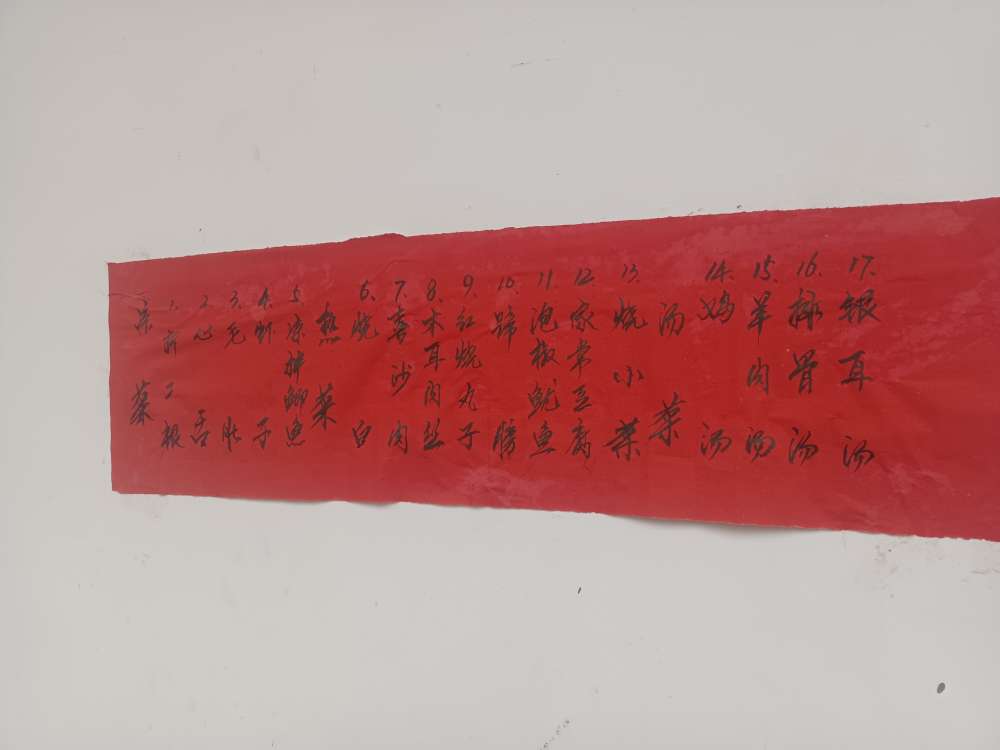 凉菜
1.折二根
2.心舌
3.毛肚
4.虾子
5.凉拌鲫鱼
热菜
6.烧白
7.喜沙肉
8.木耳肉丝
9.红烧丸子
10.蹄膀
11.泡椒鱿鱼
12.家常豆腐
13.烧小菜
汤菜
14.鸡汤
15.羊肉汤
16.排骨汤
17.银耳汤